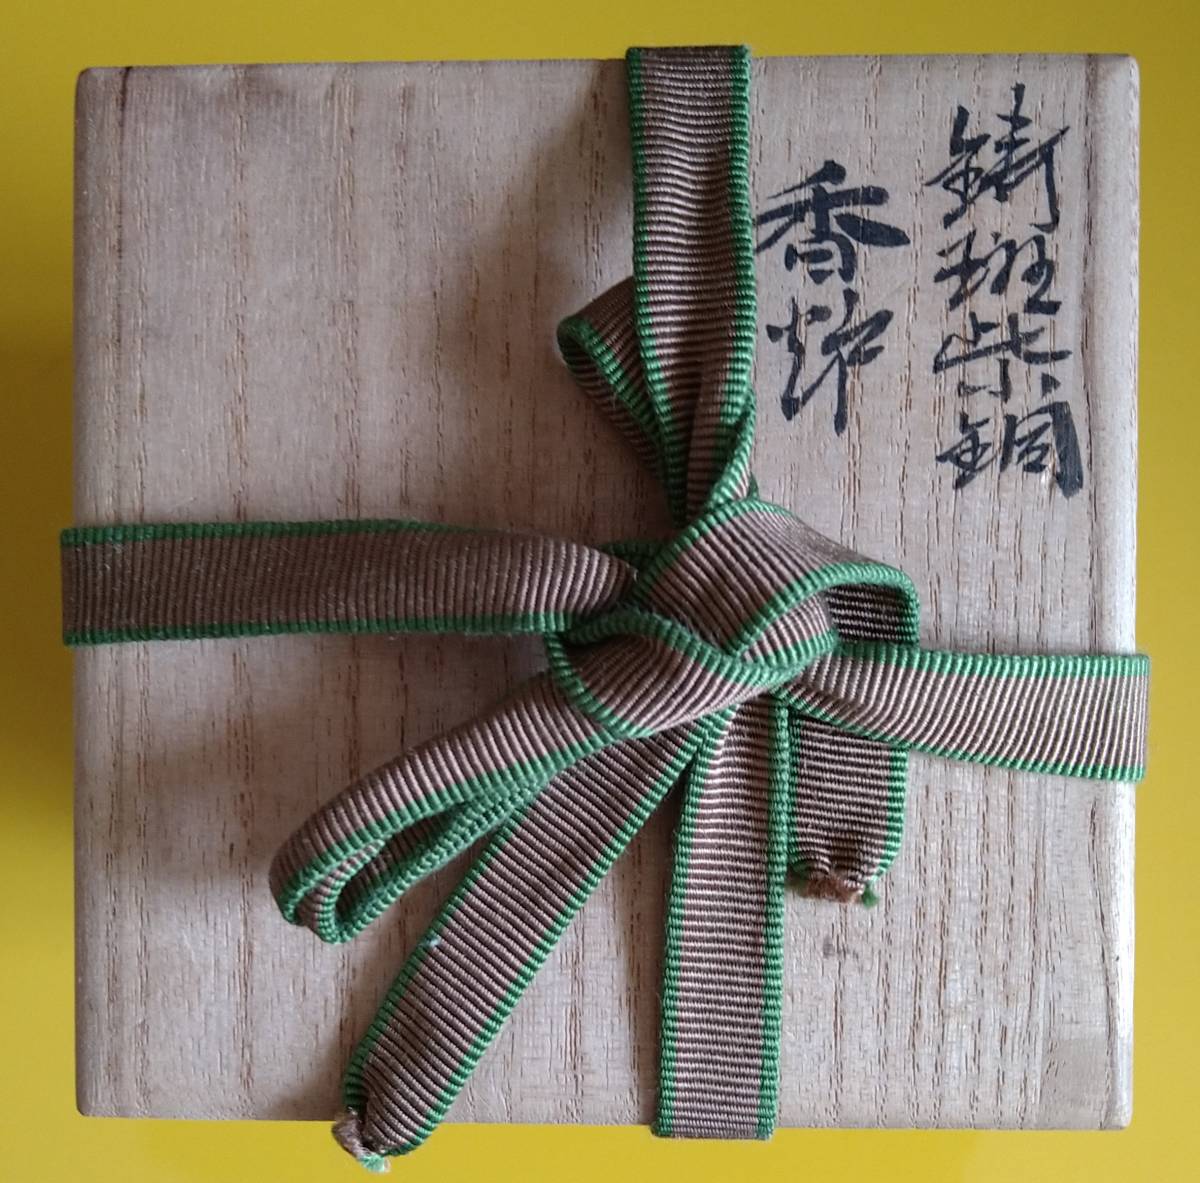 鋳斑紫銅
香炉